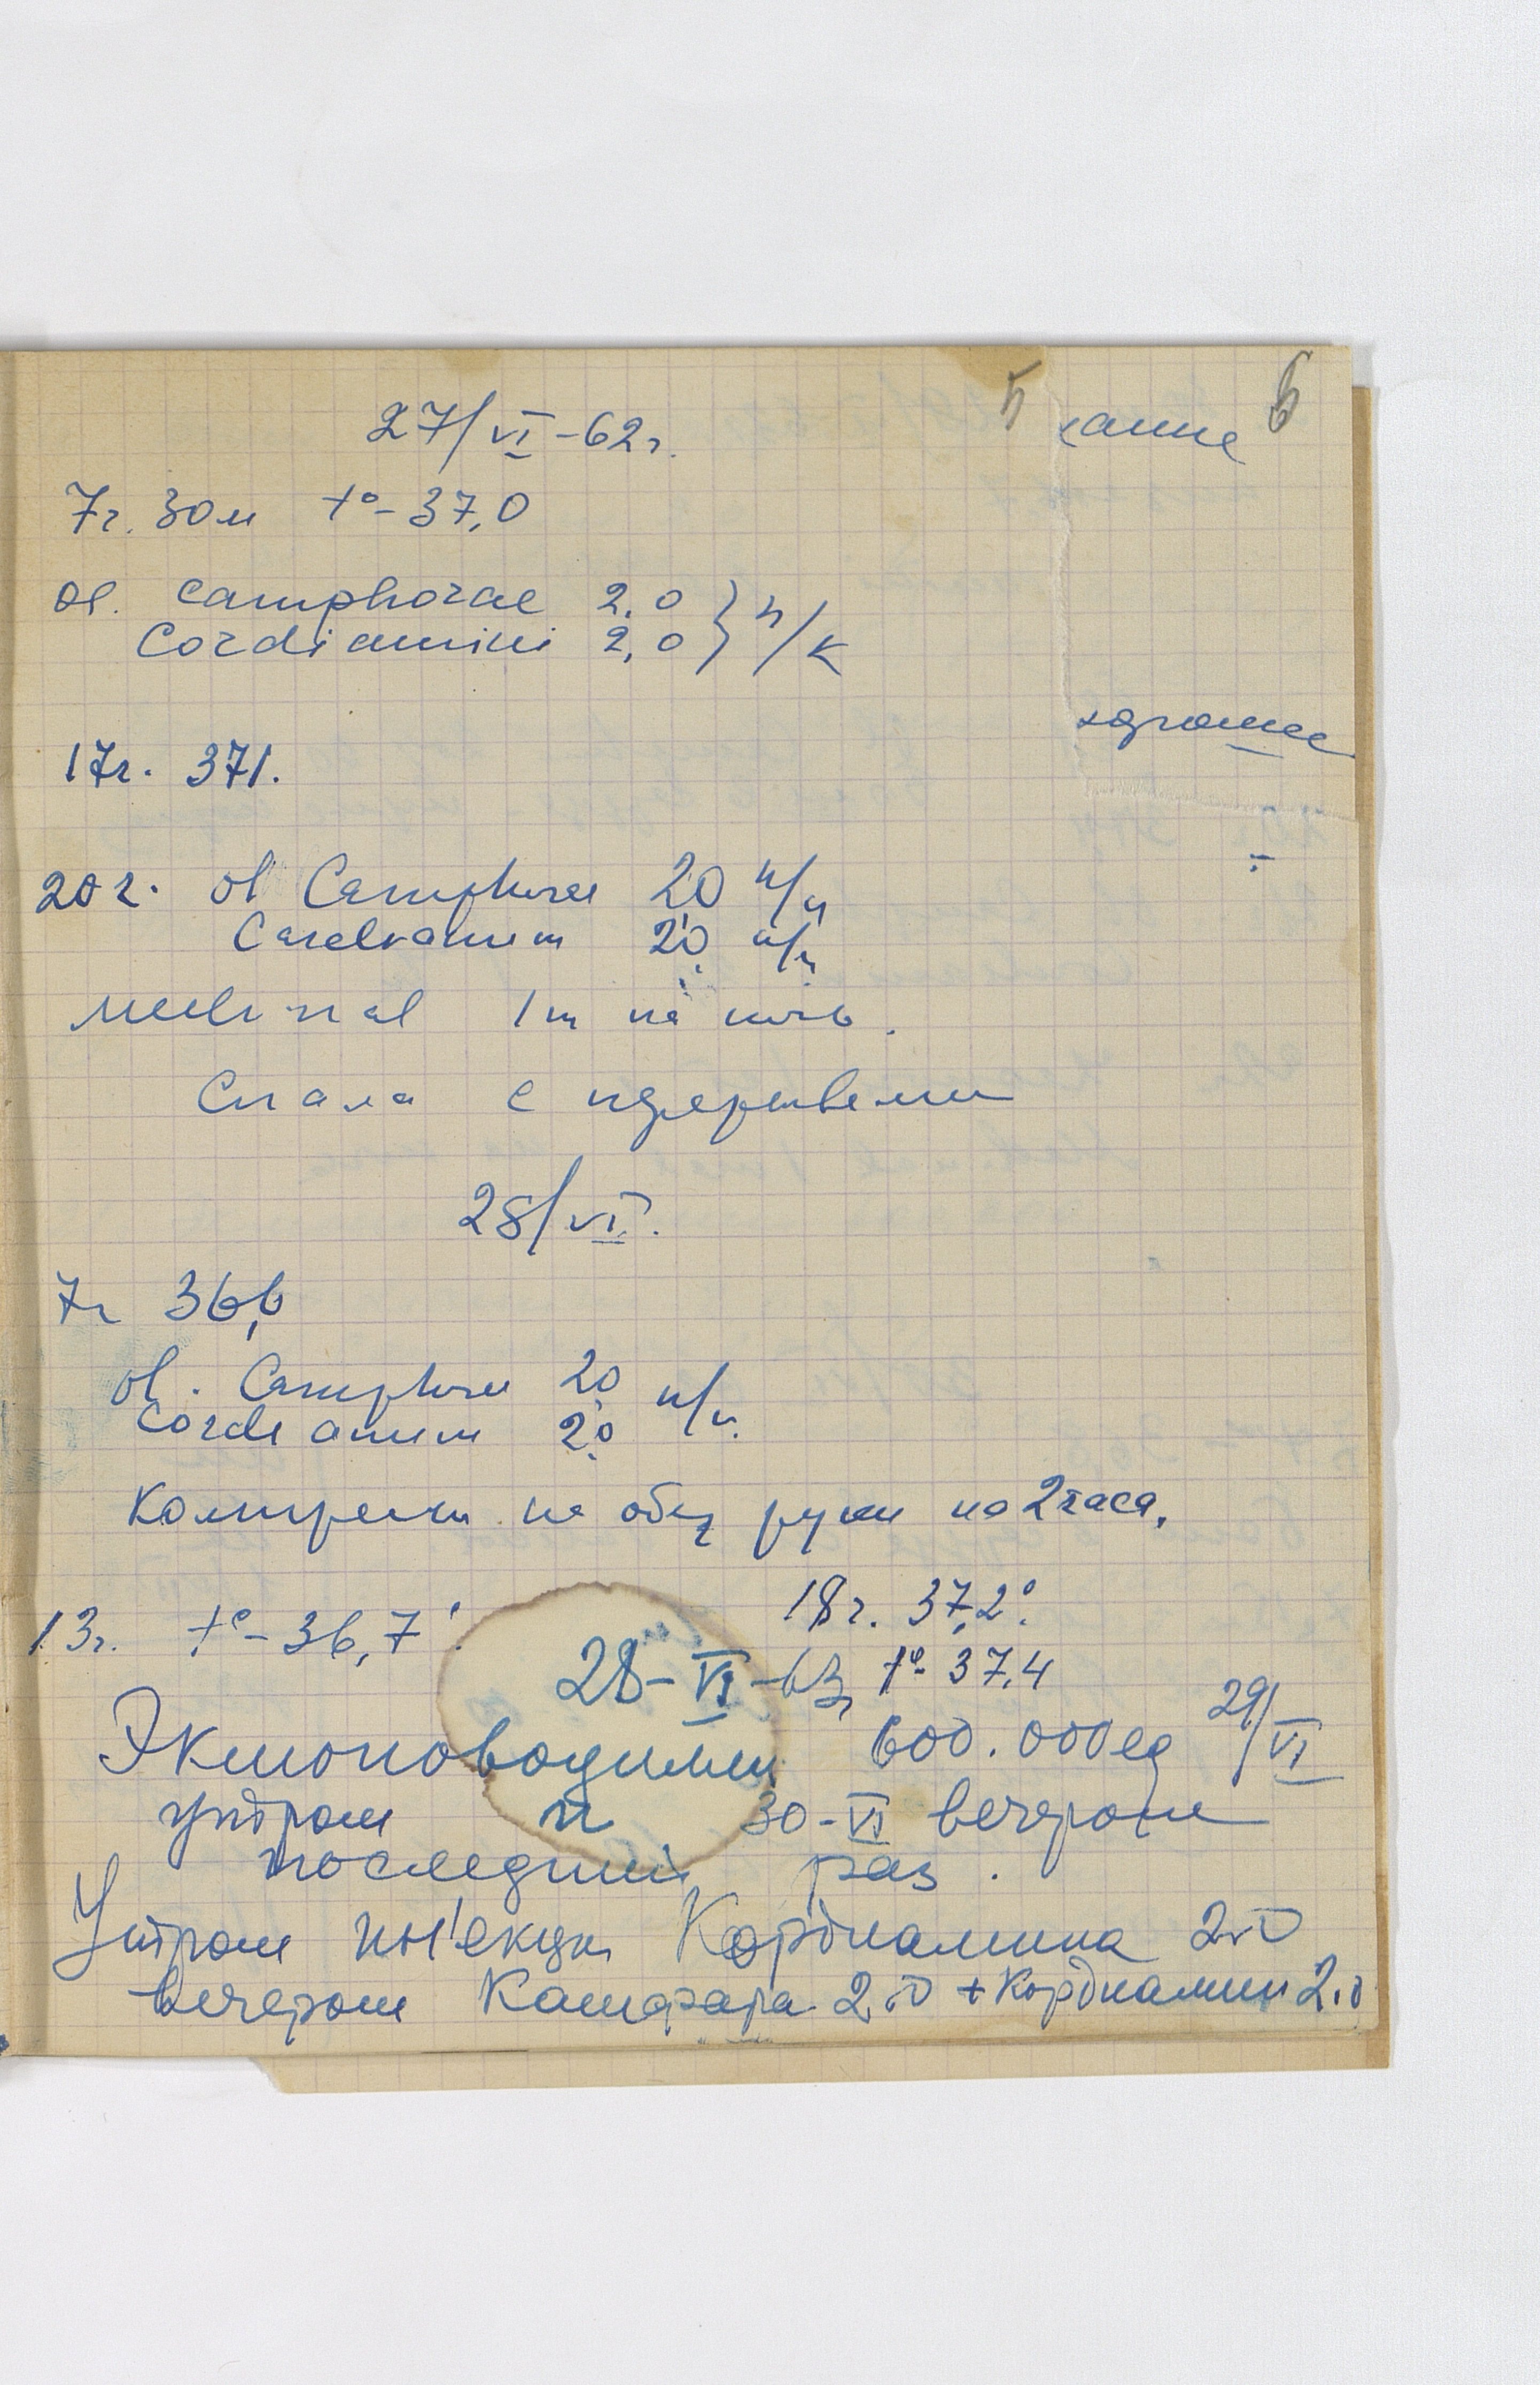 5 6
27/VI-62г.
7ч. 30м t°- 37,0
Ol. Camphorae 2,0 } п/к
Cordiamini 2,0
17ч. 371.
20ч. Ol Camphorae 2,0 п/к
Cordiamini 2,0 п/к
Medinal 1т на ночь.
Спала с перерывами
28/VI.
7ч 36,6
Ol. Camphorae 2,0 п/к
Cordiamini 2,0
Компрессы на обе руки на 2 часа.
13ч. t°- 36,7°. 18ч. 37,2°.
28-VI t°- 37,4
Экмоновоциллин 600.000 ед 29/VI
утром и 30-VI вечером
последний раз.
Утром ин'екция Кордиамина 2.0
вечером Камфара 2.0 + Кордиамин 2.0